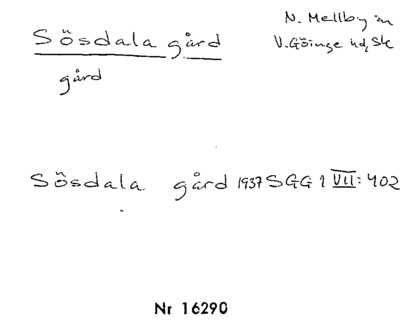 Sösdala gård
N. Mellby sn
V. Göinge hd, Sk
gård
Sösdala gård 1937 SGG 1 VII: 402
Nr 16290